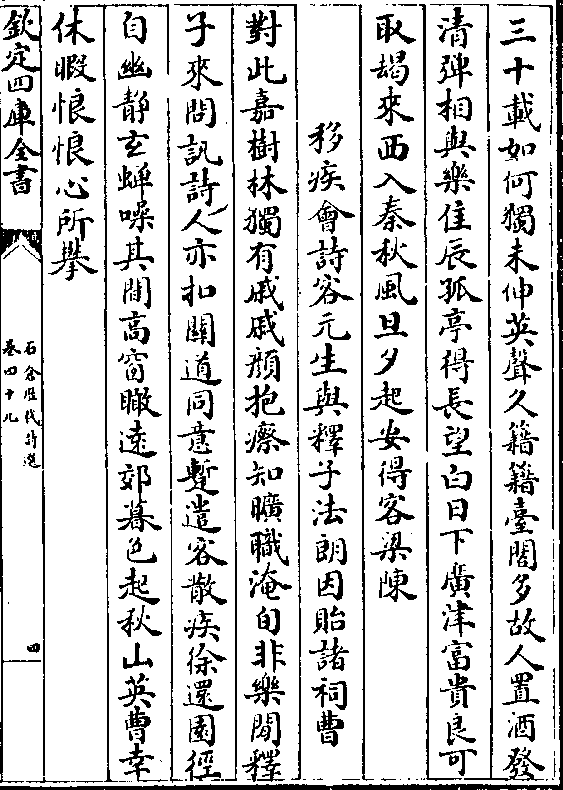 三十載如何獨未伸英聲久籍籍臺閣多故人置酒發
清彈相與樂佳辰孤亭得長望白日下廣津富貴良可
取朅來西入秦秋風旦夕起安得客梁陳
移疾會詩客元生與釋子法朗因貽諸祠曹
對此嘉樹林獨有戚戚顔抱瘵知曠職淹旬非樂閒釋
子來問訊詩人亦扣關道同意暫遣客散疾徐還園徑
自幽靜玄蟬噪其間高窗瞰遠郊暮色起秋山英曹幸
休暇悢悢心所攀
欽定四庫全書
石倉歷代詩選
卷四十九
四